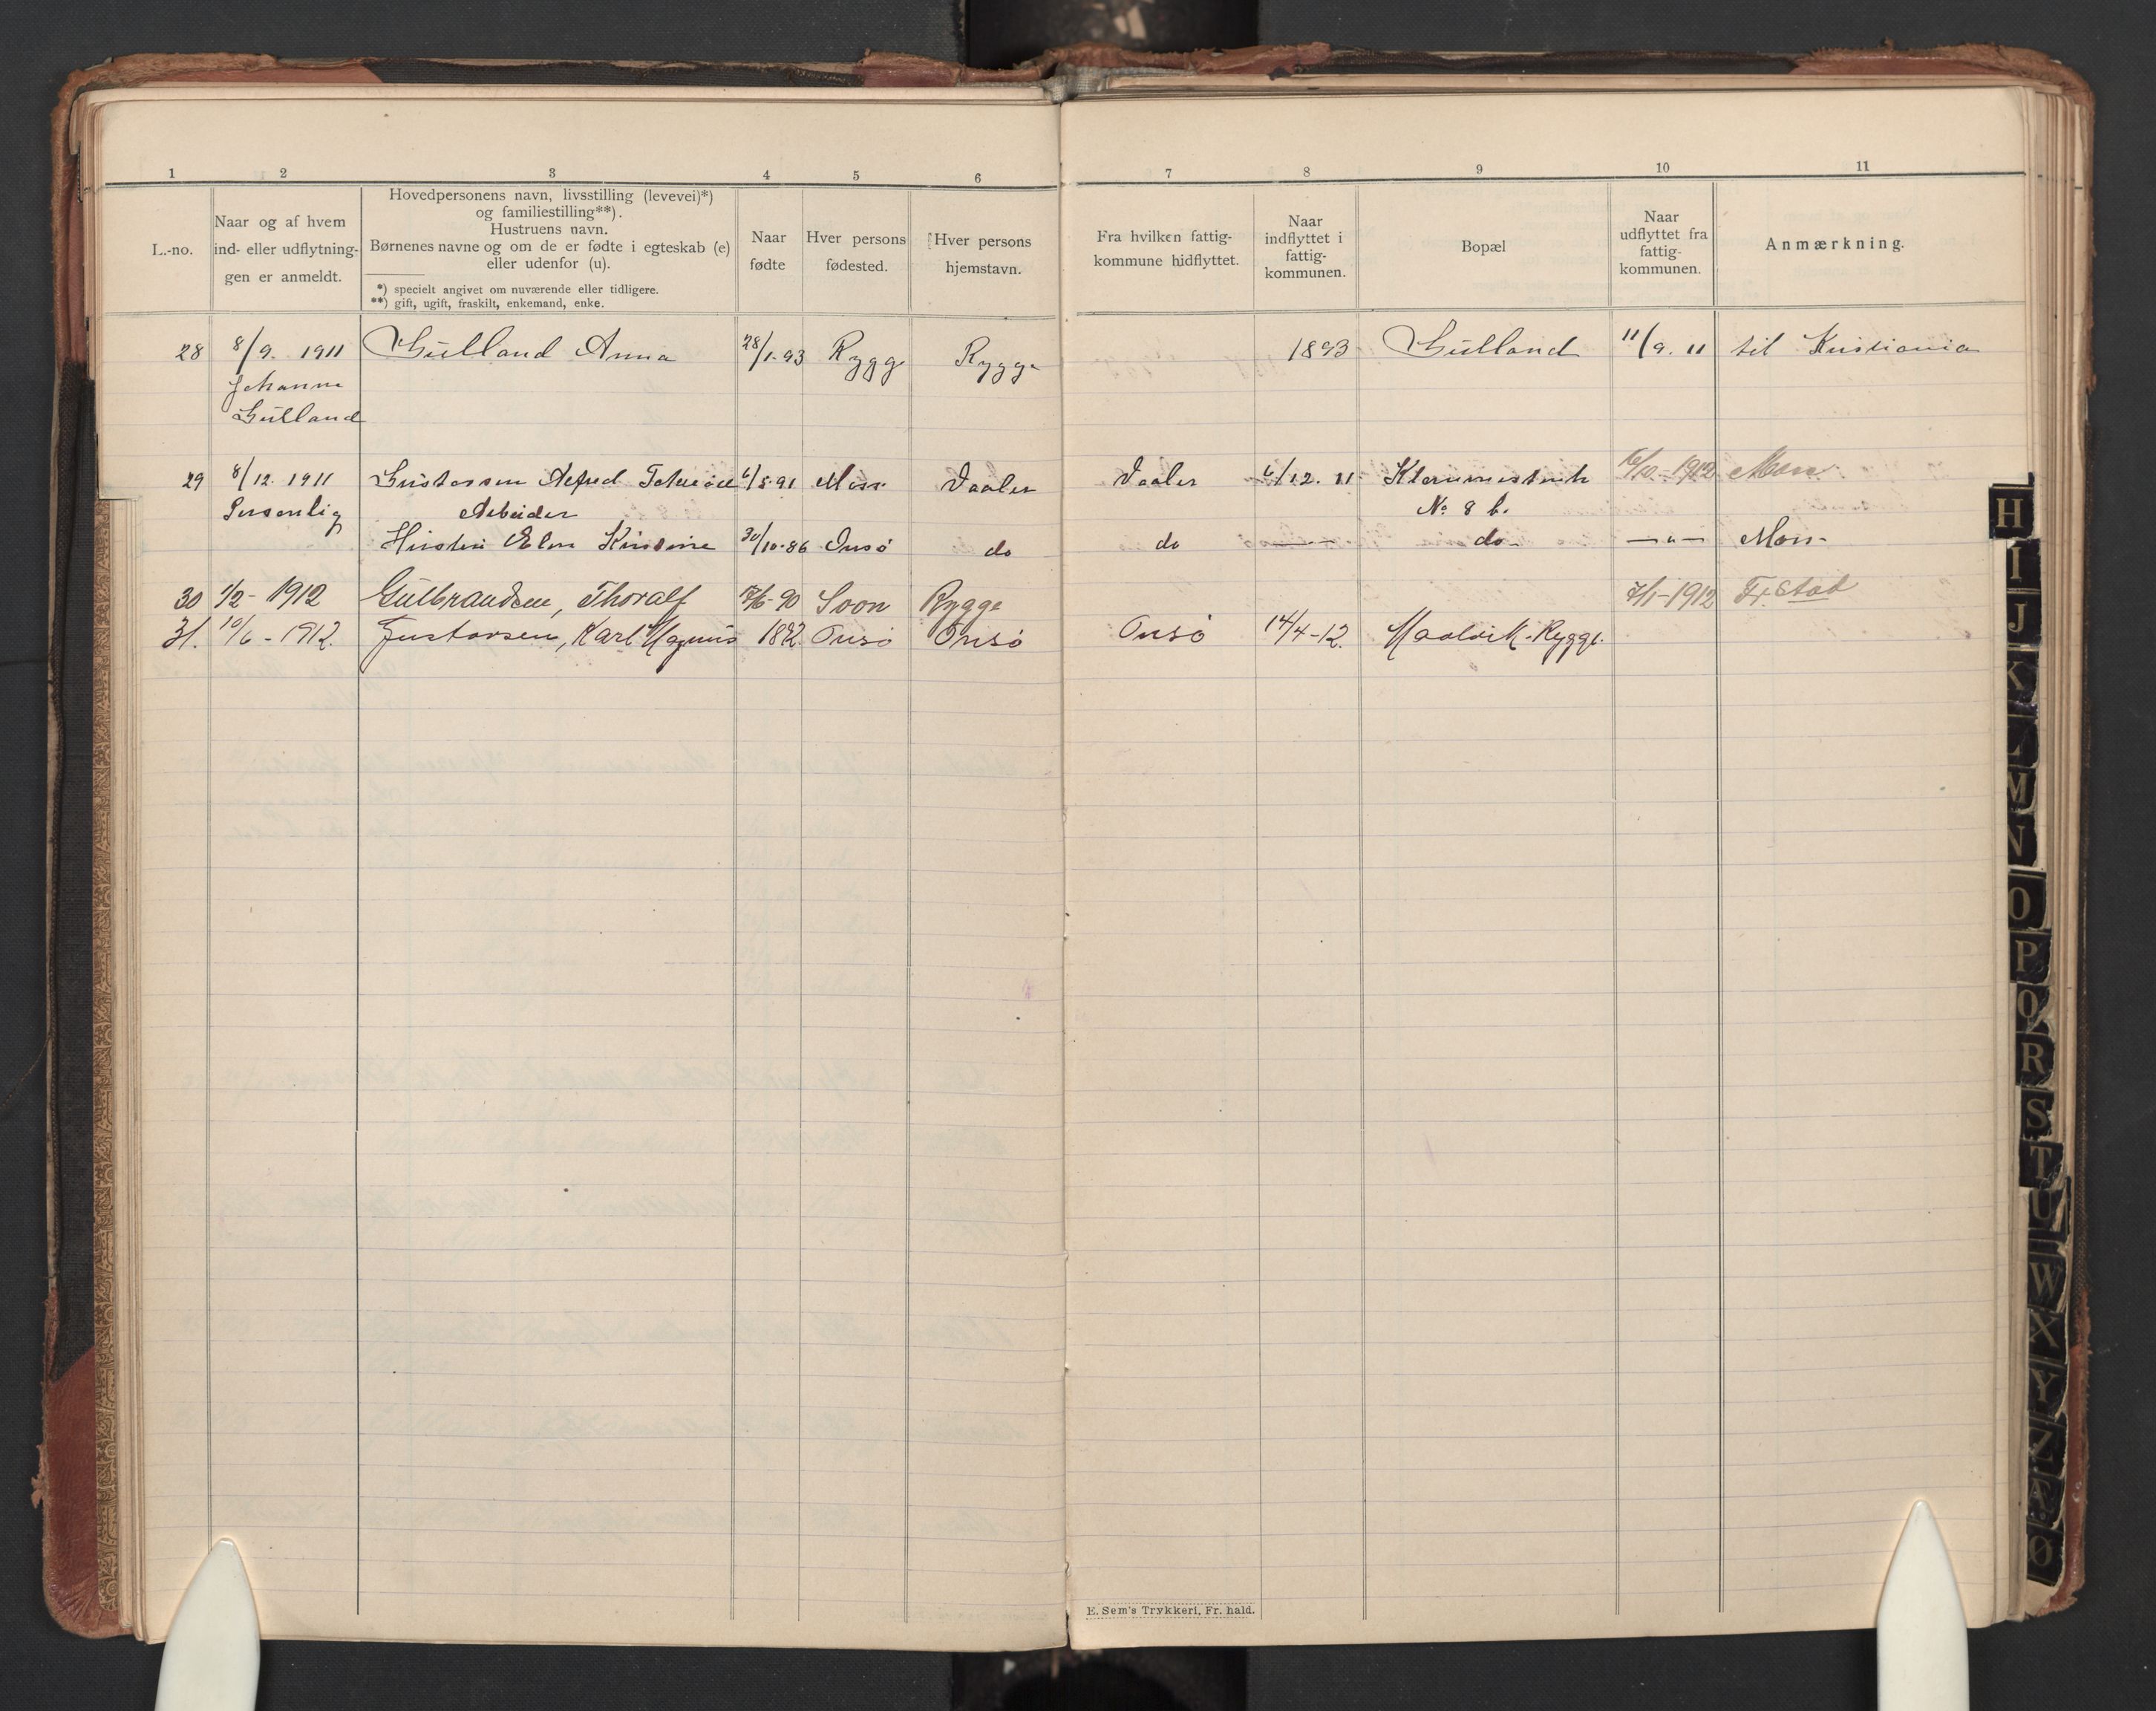 1 2 3 4 5 6 7 8 9 10 11
L.-no.
Naar og af hvem
ind- eller udflytning-
gen er anmeldt.
Hovedpersonens navn, livsstilling (levevei)*)
og familiestilling**).
Hustruens navn.
Børnenes navne og om de er fødte i egteskab (e)
eller udenfor (u).
*) specielt angivet om nuværende eller tidligere.
**) gift, ugift, fraskilt, enkemand, enke.
Naar
fødte
Hver persons
fødested.
Hver persons
hjemstavn.
Fra hvilken fattig-
kommune hidflyttet.
Naar
indflyttet i
fattig-
kommunen.
Bopæl
Naar
udflyttet fra
fattig-
kommunen.
Anmærkning.
28 8/9. 1911 Gulland Anna 28/1.93 Rygge Rygge 1893 Gulland 11/9. 11 til Kristiania
Johanne
Gulland
29 8/12. 1911 Gustavsen Alfred 6/8.91 Moss Vaaler Vaaler 6/12. 11 16/10-1912 Moss
Personlig Arbeider No 8 b.
Hustru Kristine 30/10.86 Onsø do do do — " — Moss
30 1/2-1912 Gulbrandsen, Thoralf 90 Soon Rygge 7/1-1912 Fr.stad
31. 10/6-1912. Gustavsen, Karl Magnus 1892. Onsø Onsø Onsø 14/4-12. Rygge.
H
I
J
K
L
M
N
O
P
Q
R
S
T
U
W
X
Y
Z
Æ
Ø
E. Sem's Trykkeri, Fr. hald.